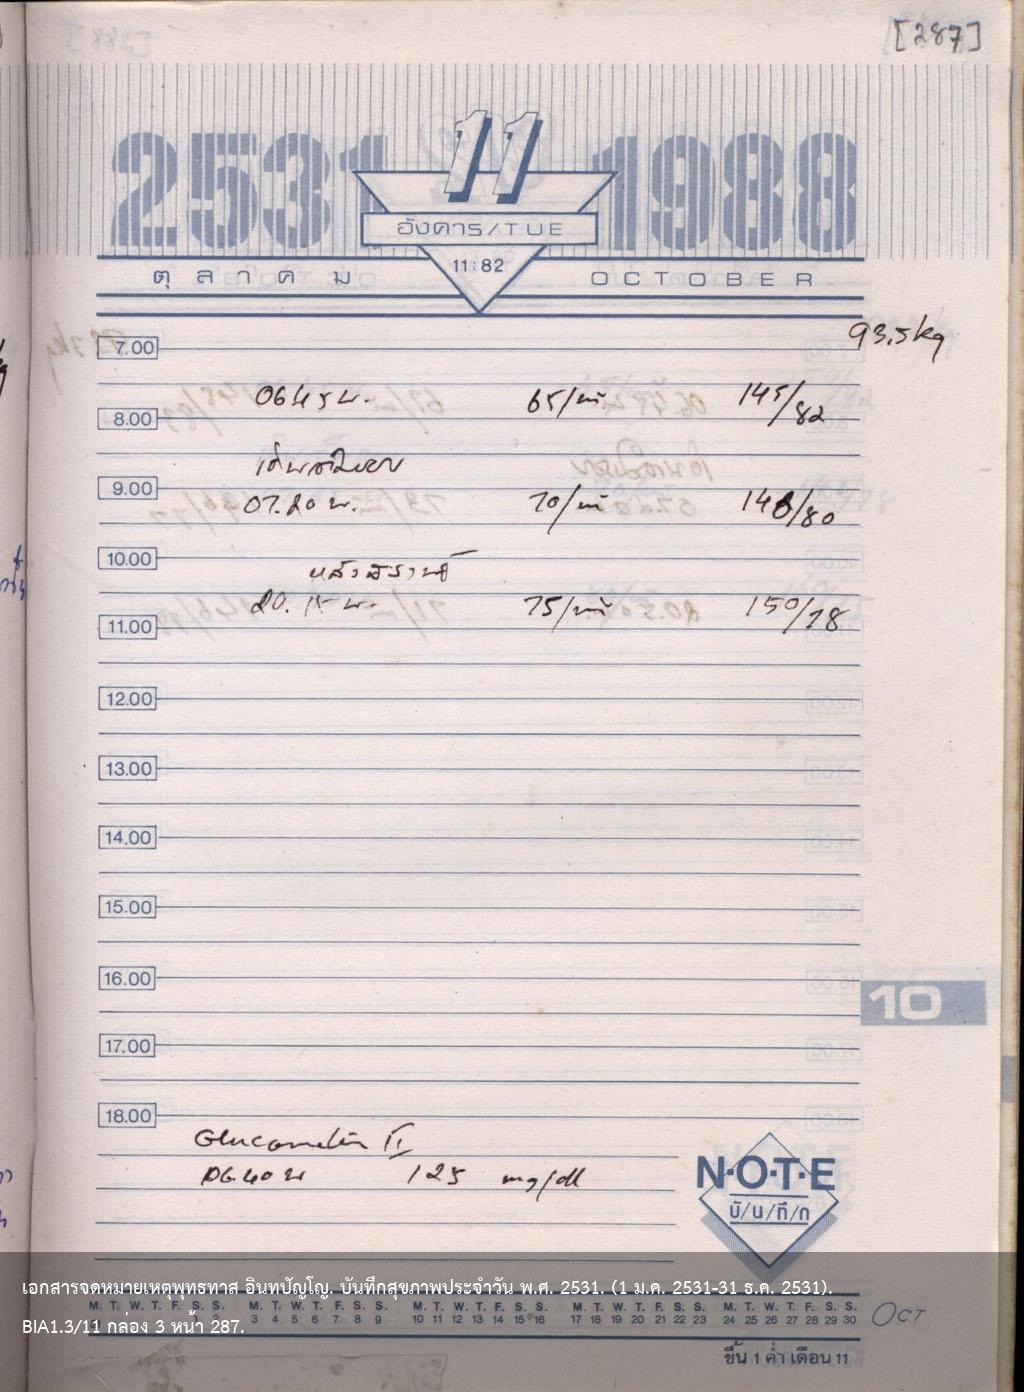 [287]
2531 11 1988
อังคาร/TUE
11:82
ตุลาคม OCTOBER
93.5 kg
7.00
0645 น. 65/นาที 145/82
8.00
9.00
07.20 น. 70/นาที 148/80
10.00
20.15 น. 75/นาที 150/78
11.00
12.00
13.00
14.00
15.00
16.00
10
17.00
18.00
Glucometer II
06.40 น 125 mg/dl
N·O·T·E
บั/น/ทึ/ก
เอกสารจดหมายเหตุพุทธทาส อินทปัญโญ. บันทึกสุขภาพประจำวัน พ.ศ. 2531. (1 ม.ค. 2531-31 ธ.ค. 2531).
M. T. W. T. F. S. S. M. T. W. T. F. S. S. M. T. W. T. F. S. S. M. T. W. T. F. S. S. M. T. W. T. F. S. S.
1 2 3 4 5 6 7 8 9 10 11 12 13 14 15 16 17 18 19 20 21 22 23 24 25 26 27 28 29 30 OCT
BIA1.3/11 กล่อง 3 หน้า 287.
ขึ้น 1 ค่ำ เดือน 11